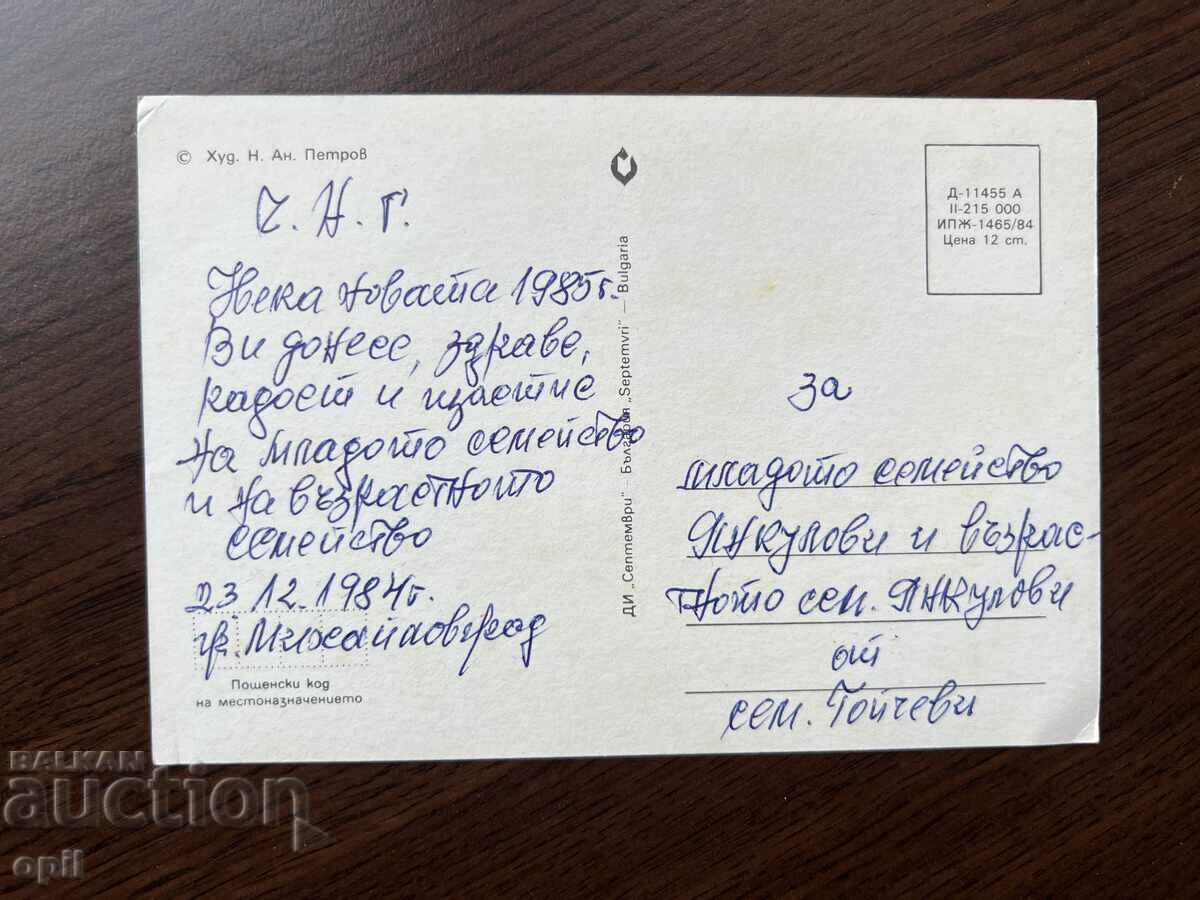 © Худ. Н. Ан. Петров
Ч. Н. Г.
Нека новата 1985г.
Ви донесе, здраве,
радост и щастие
на младото семейство
и на възрастното
семейство
23.12.1984г.
гр. Михайловград
Пощенски код
на местоназначението
ДИ „Септември" — България „Septemvri" — Bulgaria
Д-11455 А
II-215 000
ИПЖ-1465/84
Цена 12 ст.
за
младото семейство
Янкулови и възрас-
тното сем. Янкулови
от
сем. Тойчеви
BALKAN
auction
opil